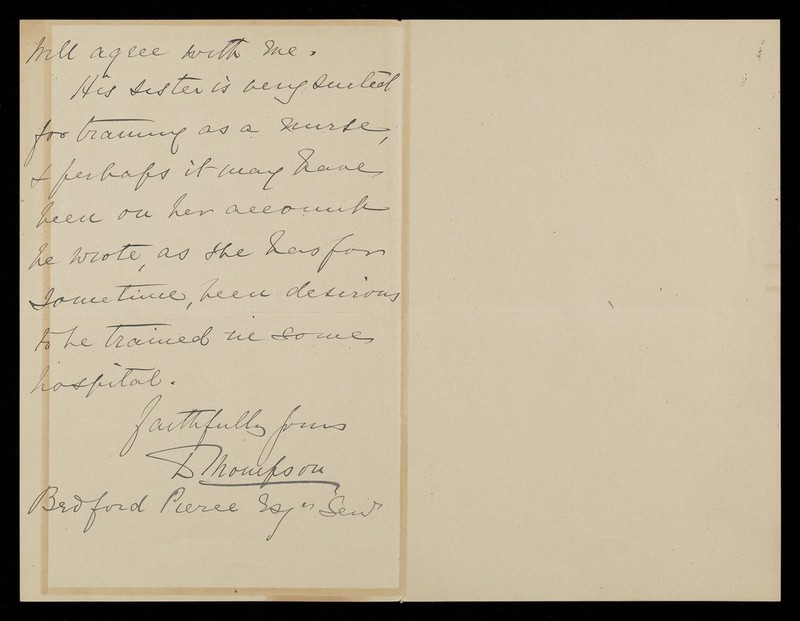 Will agree with me.
His sister is very suited
for training as a nurse,
& perhaps it may have
been on her account
he wrote, as she has for
sometime, been desirous
to be trained in some
hospital.
Faithfully yours
D Thompson
Bedford Pierce Esqr